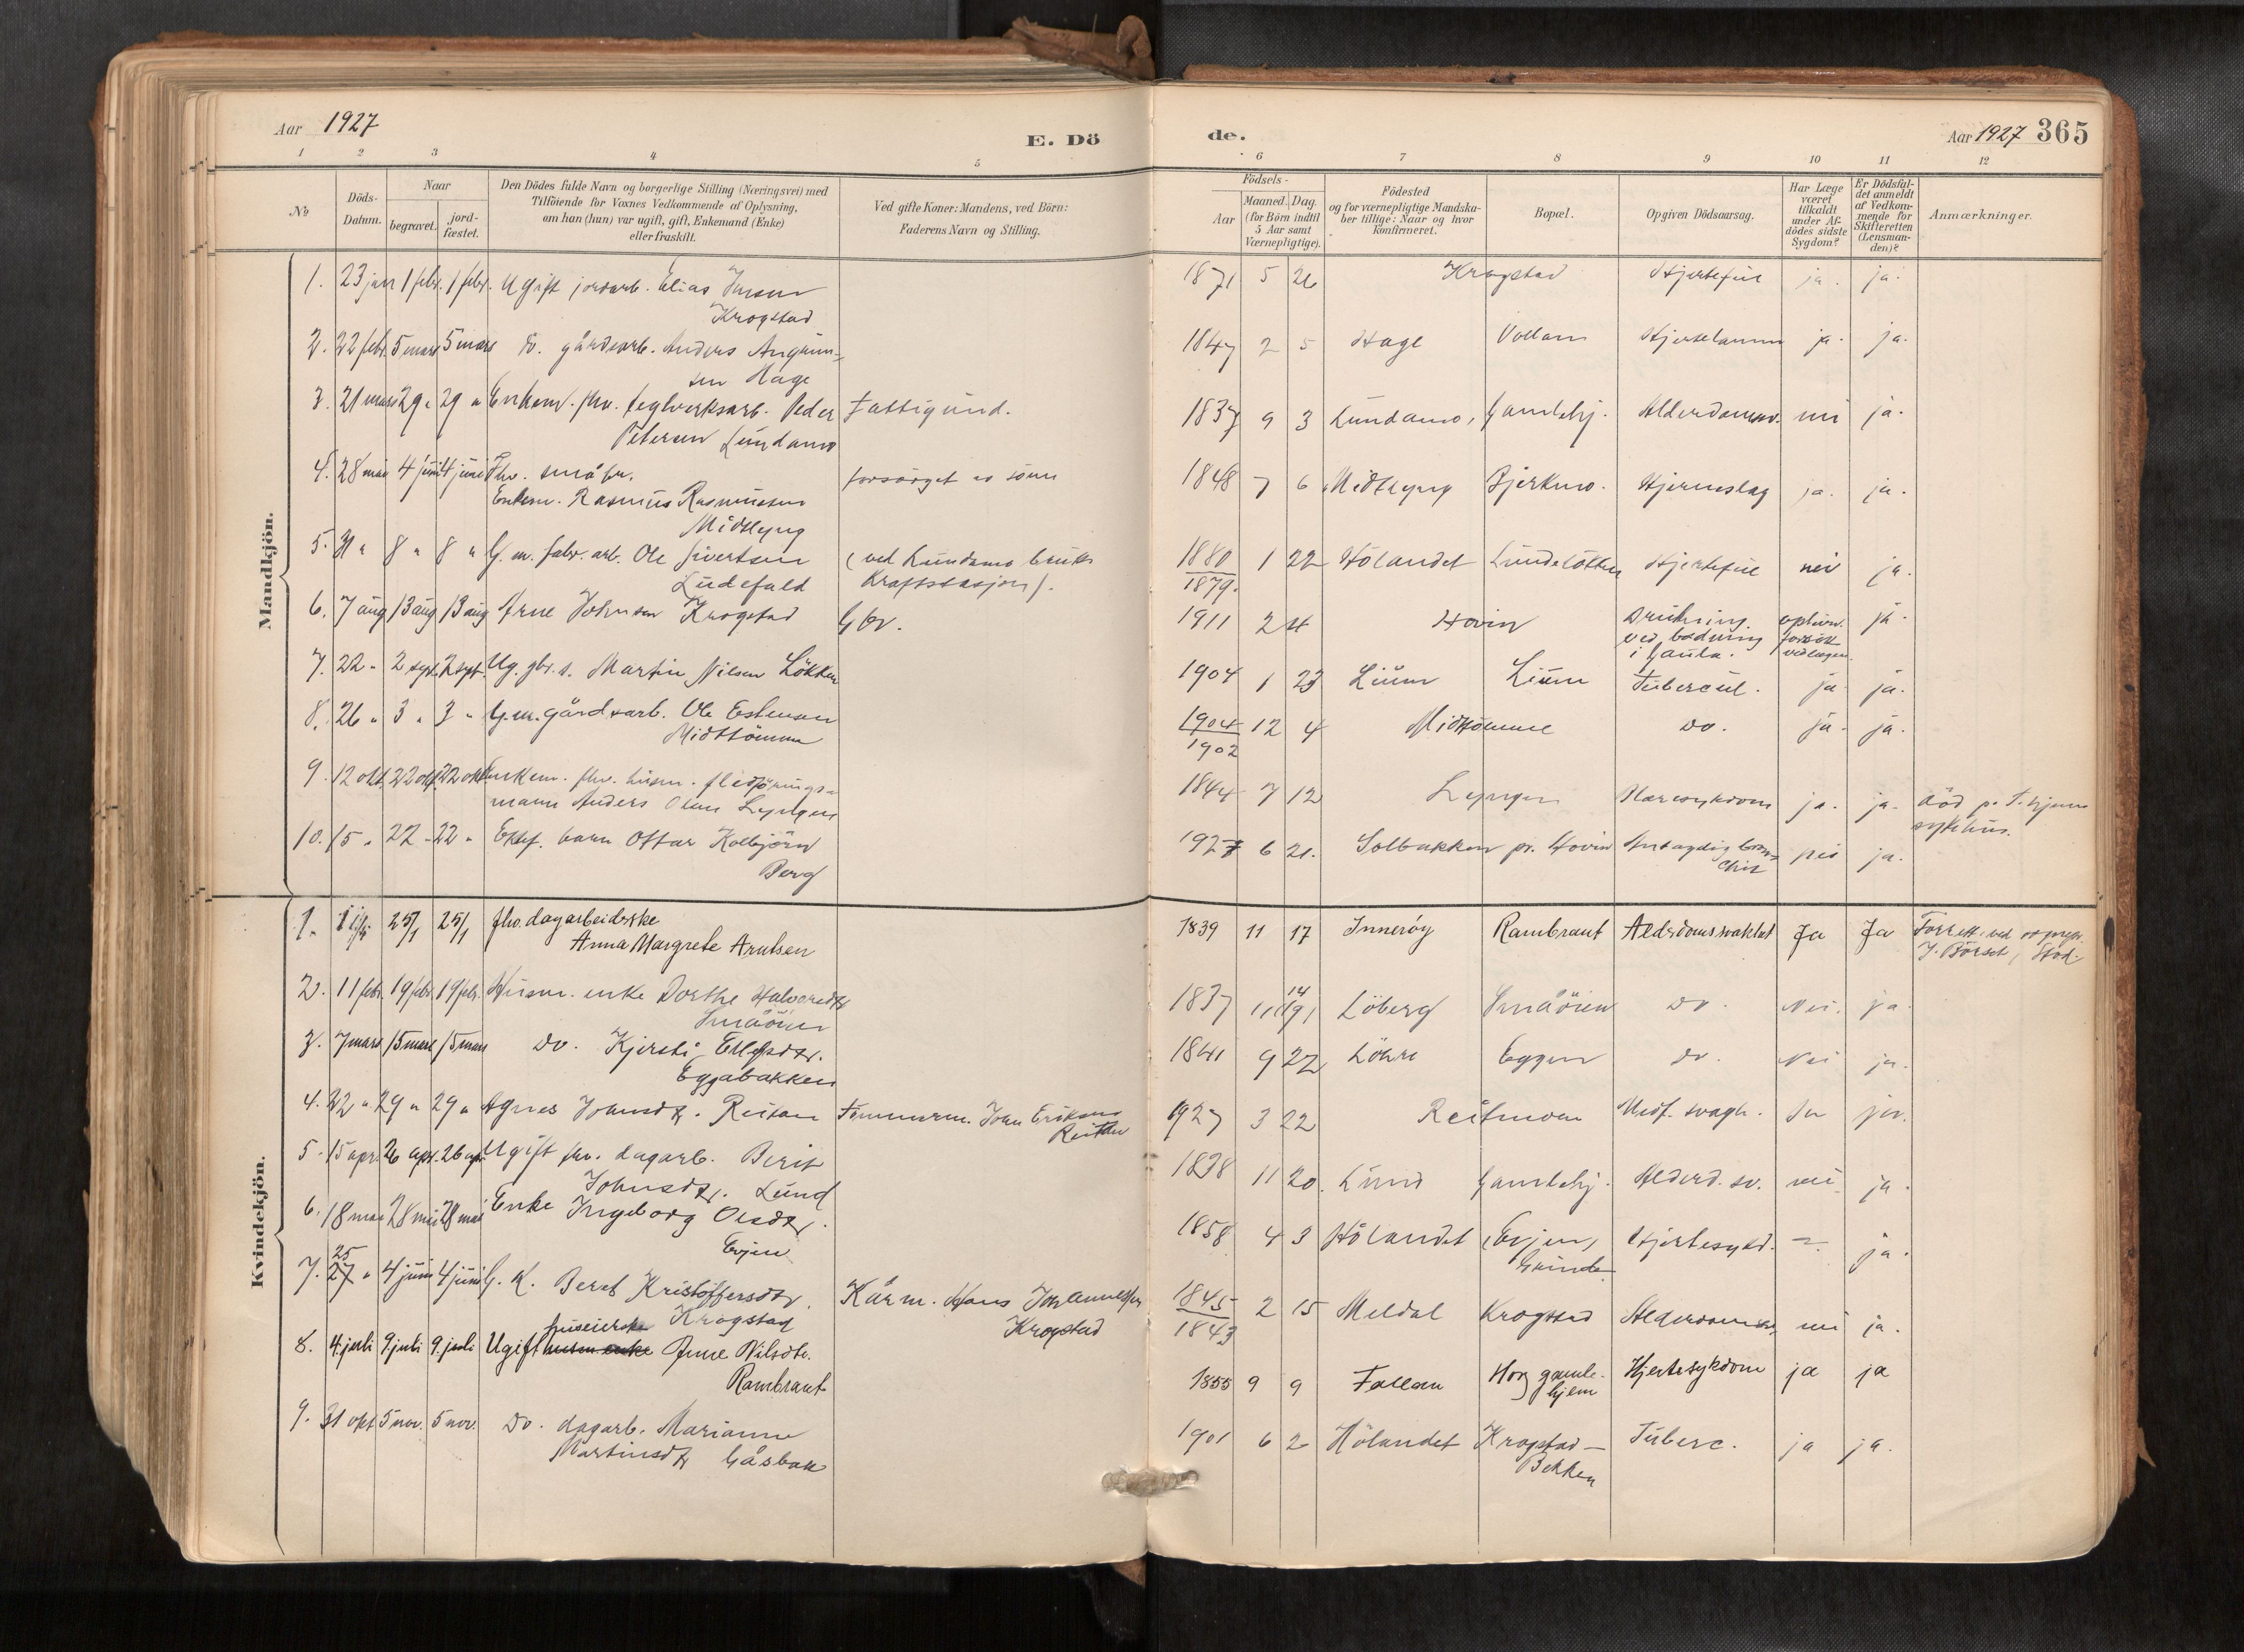 Aar 1927
E. Dö
de.
Aar 1927 365
1 2 3 4 5 6 7 8 9 10 11 12
№
Döds-
Datum.
Naar
begravet.
jord-
fæstet.
Den Dödes fulde Navn og borgerlige Stilling (Næringsvei) med
Tilföiende for Voxnes Vedkommende af Oplysning,
om han (hun) var ugift, gift, Enkemand (Enke)
eller fraskilt.
Ved gifte Koner: Mandens, ved Börn:
Faderens Navn og Stilling.
Födsels-
Aar
Maaned. Dag.
(for Börn indtil
5 Aar samt
Værnepligtige).
Födested
og for værnepligtige Mandska-
ber tillige: Naar og hvor
Konfirmeret.
Bopæl.
Opgiven Dödsaarsag.
Har Læge
været
tilkaldt
under Af-
dödes sidste
Sygdom?
Er Dödsfal-
det anmeldt
af Vedkom-
mende for
Skifteretten
(Lensman-
den)?
Anmærkninger.
Mandkjön.
1. 23 jan 1 febr. 1 febr. Ugift jordarb. Elias Jensen 1871 5 26 Krogstad Hjertefeil ja. ja.
Krogstad
2. 22 febr. 5 mars 5 mars Do. gårdsarb. Anders Angrim- 1847 2 5 Hage Vollan Hjertelamm ja. ja.
sen Hage
3. 21 mars 29 " 29 " Enkem. fhv. teglverksarb. Peder Fattigund. 1837 9 3 Lundamo, Gamlehj. Alderdomssv. nei ja.
Petersen Lundamo
4. 28 mai 4 juni 4 juni Fhv. småbr. forsörget av sönn 1848 7 6 Midtlyng Bjerkmo. Hjerneslag ja. ja.
Enkem. Rasmus Rasmussen
Midtlyng
5. 31 " 8 " 8 " G. m. fabr. arb. Ole Sivertsen (ved Lundamo bruks 1880 1 22 Hölandet Lundelökken Hjertefeil nei ja.
Ludefald Kraftstasjon). 1879.
6. 7 aug 13 aug 13 aug Arne Johnsen Krogstad Gbr. 1911 2 Hovin Drukning. oplivn. ja.
ved badning forsök
i Gaula. ved lægen.
7. 22 " 2 sept. 2 sept. Ug. gbr. s. Martin Nilsen Lökken 1904 1 23 Lium Lium Tubercul. ja. ja.
8. 26 " 3 " 3 " G. m. gårdsarb. Ole Estensen 1904 12 4 Midttömme do. ja. ja.
Midttömme 1902
9. 12 okt. 22 okt. 22 okt. Enkem. fhv. husm. fledförings- 1844 7 12 Lyngen ja. ja. död p. T.hjems
mann Anders Olsen Lyngen sykehus.
10. 15 " 22 " 22 " Ektef. barn Ottar Kolbjörn 1927 6 21. Solbakken pr. Hovin nei ja.
Berg
Kvindekjön.
1. 25/1 25/1 fhv. dagarbeiderske 1839 11 17 Inneröy Rambraut Alderdomssvakhet Ja Ja
Anna Margrete Arntsen J. Börset, Stod.
2. 11 febr. 19 febr. 19 febr. Husm. enke Dorthe Halvorsdtr 1837 11 14 Löberg Småöien do. Nei. ja.
Småöien
3. 7 mars 15 mars 15 mars Do. Kjersti Ellefsdtr. 1841 9 27 Löhre Eggen do. Nei ja.
Eggabakken
4. 22 " 29 " 29 " Agnes Johnsdtr. Reitan Tömmerm. John Eriksen 1927 3 22 Reitmoen Medf. svagh. Ja ja.
Reitan
5. 15 apr. 26 apr. 26 apr. Ugift fhv. dagarb. Berit 1838 11 20. Lund Gamlehj. Alderd. sv. nei. ja.
Johnsdtr. Lund
6. 18 mai 28 mai 28 mai Enke Ingeborg Olsdtr. 1858 4 3 Hölandet Evjen, Hjertesykd. ja.
Evjen
7. 25 27 " 4 juni 4 juni G. K. Beret Kristoffersdtr. Kårm. Hans Johannessen 1845 2 15 Meldal Krogstad Alderdomssv. nei ja.
Krogstad Krogstad 1843
huseierske
8. 4. juli 9. juli 9. juli Ugift husm. enke Anne Nilsdtr. 1855 9 9 Follan Horg gamle- Hjertesykdom ja ja
Rambraut hjem
9. 31 okt 5 nov. 5 nov. Do. dagarb. Marianne 1901 6 2 Hölandet Krogstad- Tuberc. ja ja.
Martinsdtr Gåsbak Bekken